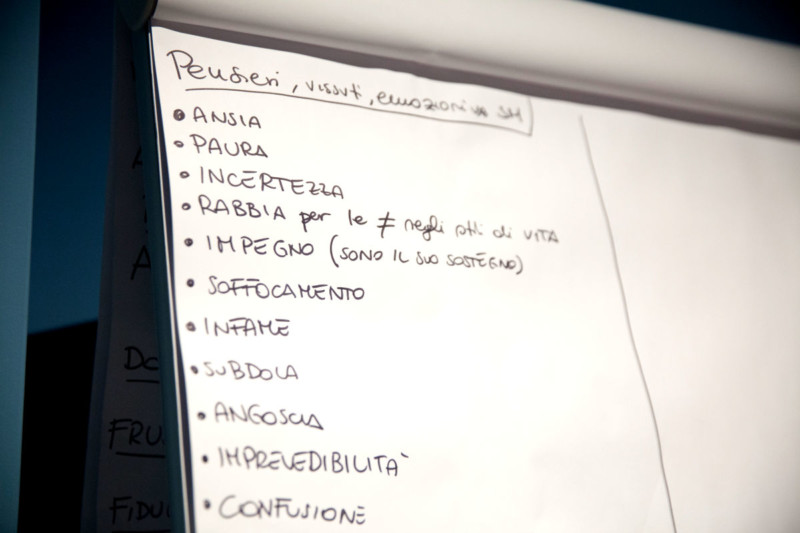 Pensieri, vissuti, emozioni vs SM
• ANSIA
• PAURA
• INCERTEZZA
• RABBIA per le ≠ negli stili di VITA
• IMPEGNO (SONO IL SUO SOSTEGNO)
• SOFFOCAMENTO
• INFAME
• SUBDOLA
• ANGOSCIA
• IMPREVEDIBILITA'
• CONFUSIONE
DO
FRU
FIDU